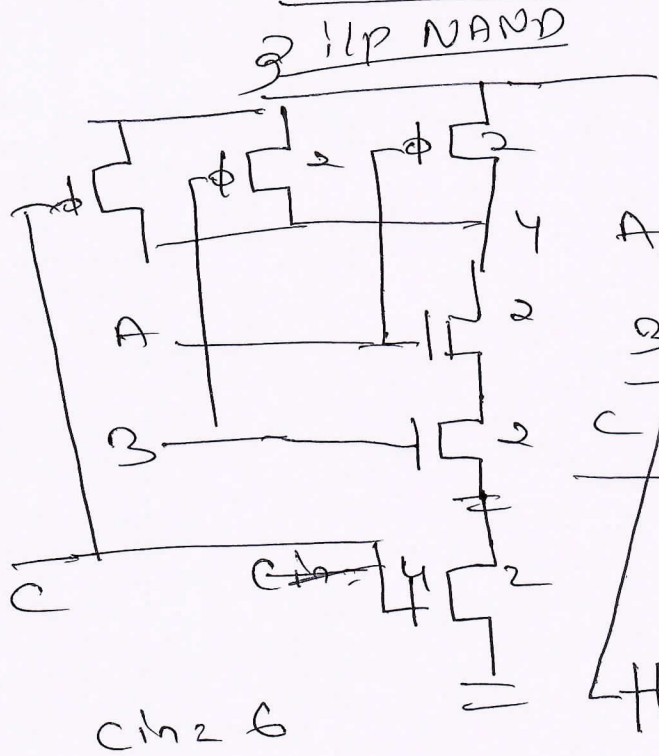 3 i/p NAND
2
2
4
A
A
2
B
2
C
C
Cin=
4
2
Cin = 6